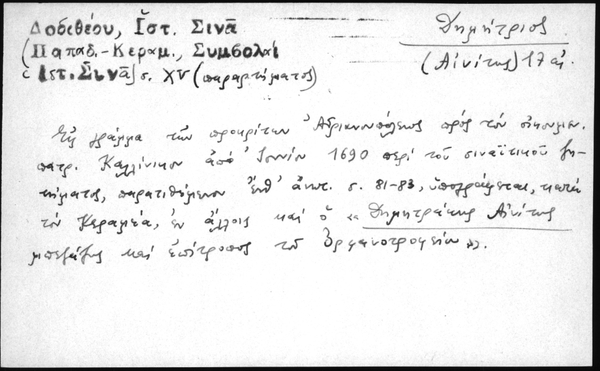 Δοσιθέου, Ἱστ. Σινᾶ
(Παπαδ.-Κεραμ., Συμβολαὶ
ἱστ. Σινᾶ) σ. XV (παραρτήματος)
Δημήτριος
(Αἰνίτης) 17 αἰ.
Εἰς γράμμα τῶν προκρίτων Ἀδριανουπόλεως πρὸς τὸν οἰκουμεν.
πατρ. Καλλίνικον ἀπὸ Ἰουνίου 1690 περὶ τοῦ σιναϊτικοῦ ζη-
τήματος, παρατιθέμενον ἔνθ' ἀνωτ. σ. 81-83, ὑπογράφεται, κατὰ
τὸν Κεραμέα, ἐν ἄλλοις καὶ ὁ « Δημητράκης Αἰνίτης
καὶ ἐπίτροπος τοῦ Ὀρφανοτροφείου ».